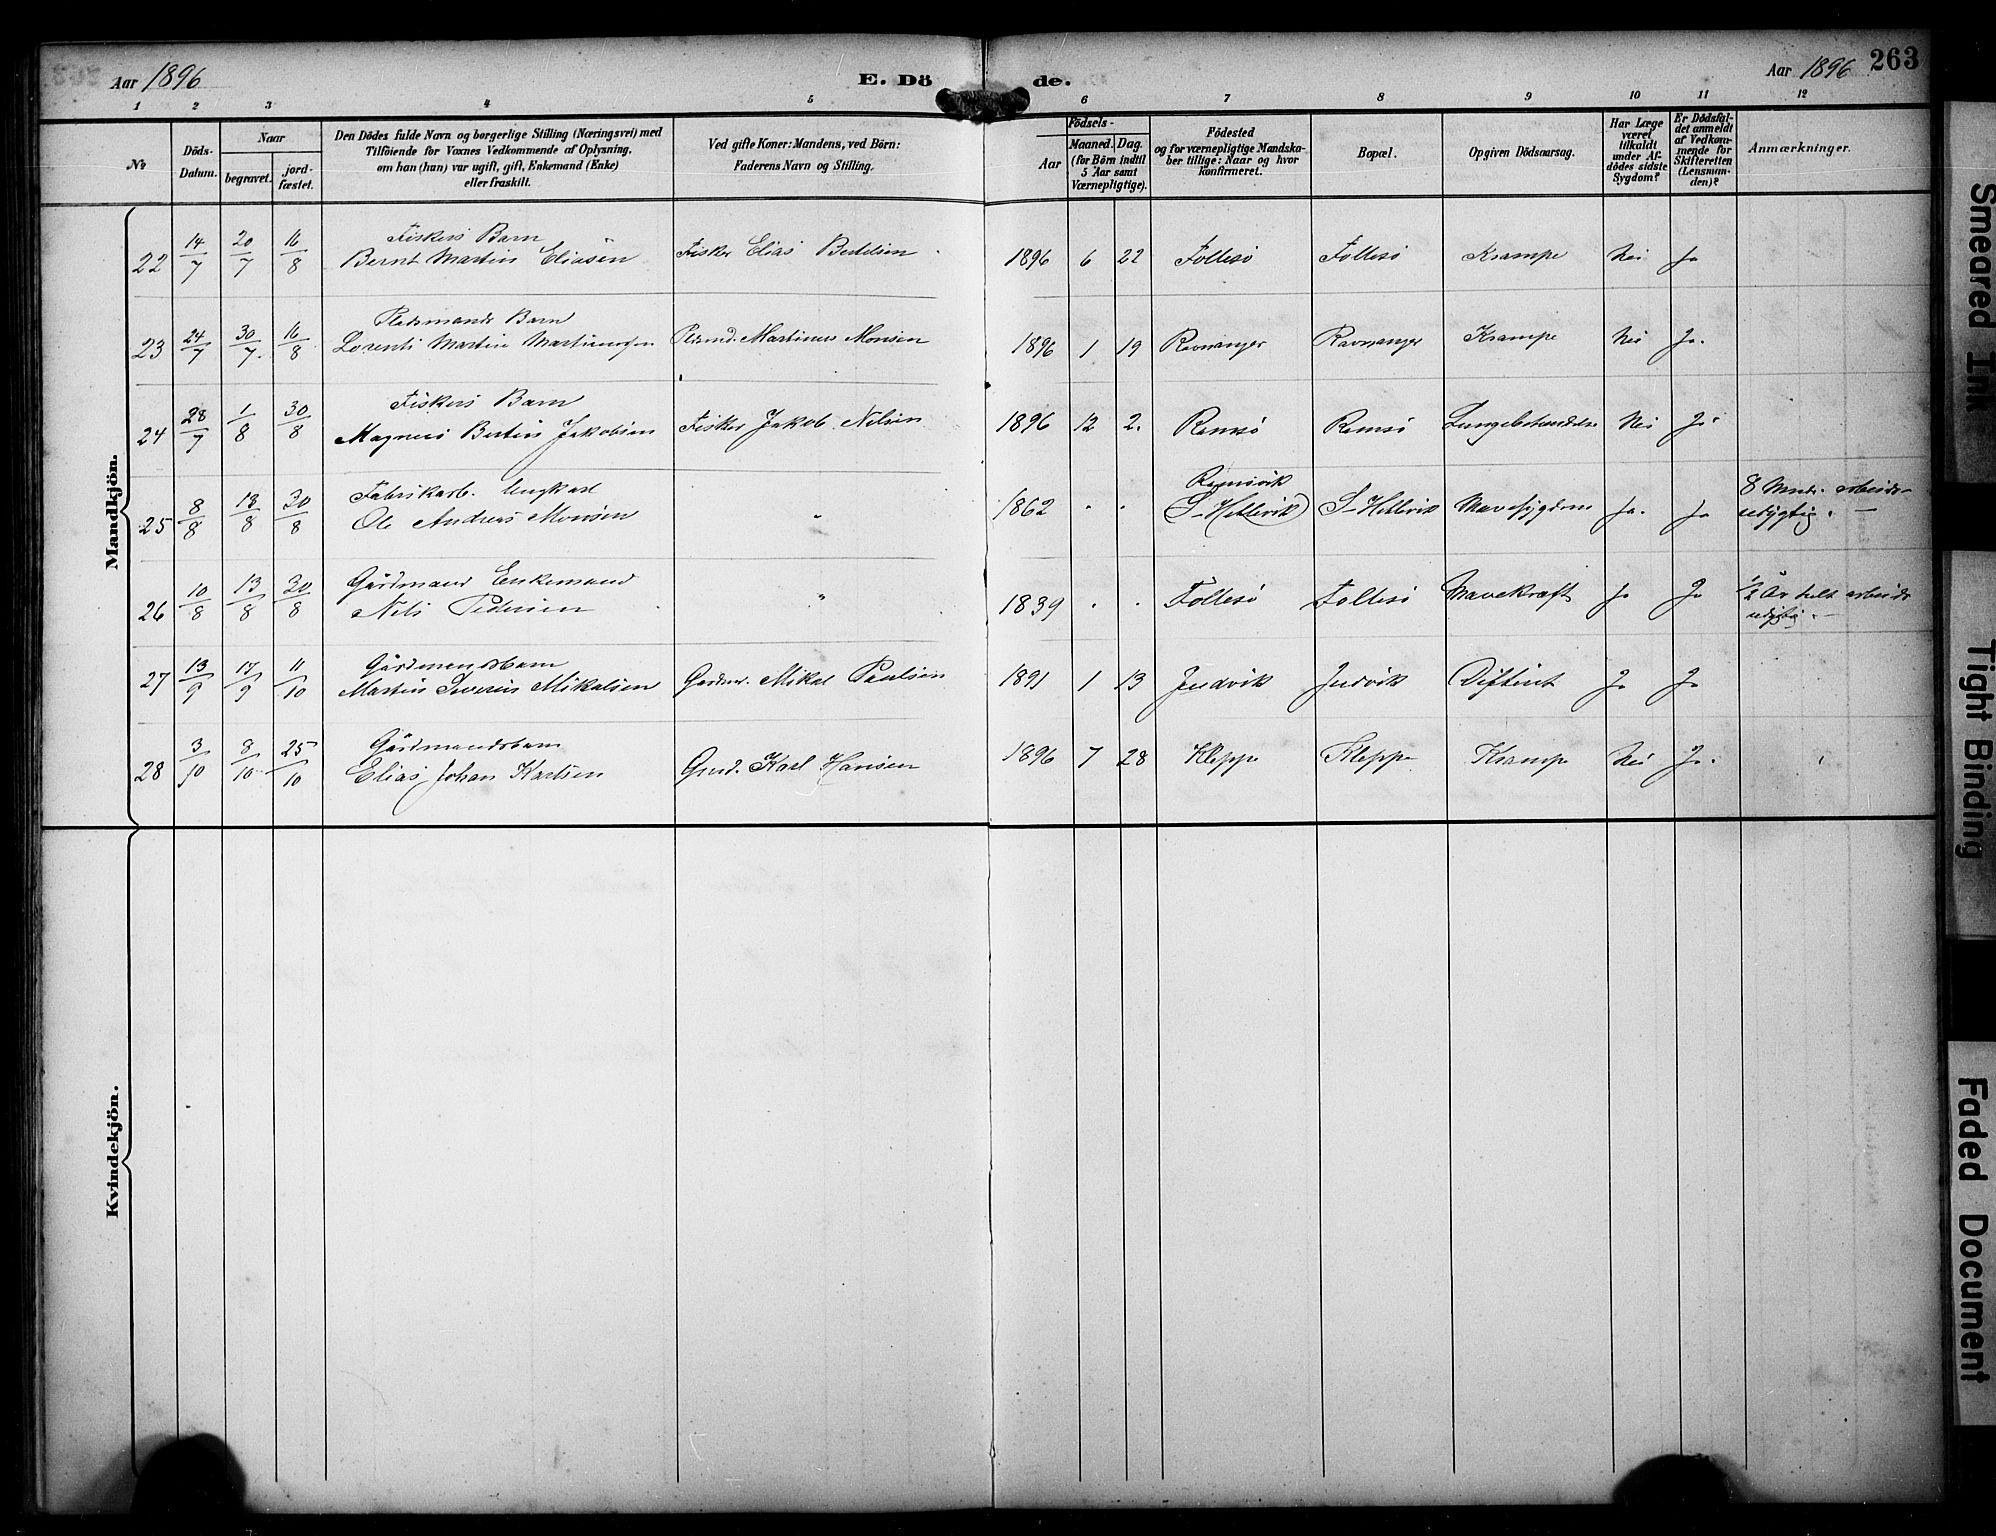 Aar 1896 E. Dö de. Aar 1896 263
1 2 3 4 5 6 7 8 9 10 11 12
No
Döds-
Datum.
Naar
begravet.
jord-
fæstet.
Den Dödes fulde Navn og borgerlige Stilling (Næringsvei) med
Tilföiende for Voxnes Vedkommende af Oplysning,
om han (hun) var ugift, gift, Enkemand (Enke)
eller fraskilt.
Ved gifte Koner: Mandens, ved Börn:
Faderens Navn og Stilling.
Födsels-
Aar
Maaned. Dag.
(for Börn indtil
5 Aar samt
Værnepligtige).
Födested
og for værnepligtige Mandska-
ber tillige: Naar og hvor
konfirmeret.
Bopæl.
Opgiven Dödsaarsag.
Har Læge
været
tilkaldt
under Af-
dödes sidste
Sygdom?
Er Dödsfal-
det anmeldt
af Vedkom-
mende for
Skifteretten
(Lensman-
den)?
Anmærkninger.
Mandkjön.
Fiskers Barn
22 14/7 20/7 16/8 Bernt Martin Eliasen Fisker Elias Bertelsen 1896 6 22 Follesö Follesö Krampe Nei Ja
Pladsmands Barn
23 24/7 30/7 16/8 Lorents Martin Plsmd. Martinus Monsen 1896 1 19 Ravnanger Ravnanger Krampe Nei Ja.
Fiskers Barn
24 28/7 1/8 30/8 Magnus Bertin Jakobsen Fisker Jakob Nilsen 1896 12 2. Ramsö Ramsö Nei Ja
Fabrikarb. Ungkarl Ramsvik 8 Mndr. arbeids-
25 8/8 13/8 30/8 Ole Andreas Monsen " 1862 . . (S-Hetlevik) S-Hetlevik Mavesygdom Ja. Ja udygtig.
Gårdmand Enkemand
26 10/8 13/8 30/8 Nils Pedersen " 1839 . . Follesö Follesö Mavekræft Ja Ja ½ År helt arbeids
udygtig.
Gårdmandsbarn
27 13/9 17/9 11/10 Martin Severin Mikalsen Gardm. Mikal Paulsen 1891 1 13 Juvik Juvik Difterit Ja Ja
Gårdmandsbarn
28 3/10 8/10 25/10 Elias Johan Karlsen Gmd. Karl Hansen 1896 7 28 Kleppe Kleppe Krampe Nei Ja.
Kvindekjön.
Smeared Ink
Tight Binding
Faded Document